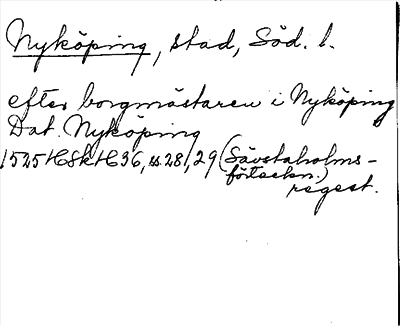 Nyköping, stad, Söd. l.
efter borgmästaren i Nyköping
Dat. Nyköping
1525 HSkH 36, s. 28, 29 (Sävstaholms-
förteckn.)
regest.